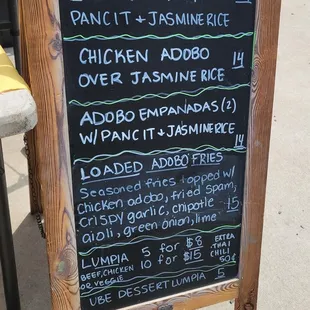 PANCIT + JASMINE RICE
CHICKEN ADOBO
OVER JASMINE RICE 14
ADOBO EMPANADAS (2)
W/ PANCIT + JASMINE RICE 14
LOADED ADOBO FRIES
Seasoned fries topped w/
Chicken adobo, fried Spam,
Crispy garlic, chipotle 15
aioli, green onion, lime
LUMPIA 5 for $8
BEEF, CHICKEN 10 for $15
OR VEGGIE
EXTRA
THAI
CHILI
50¢
UBE DESSERT LUMPIA 5